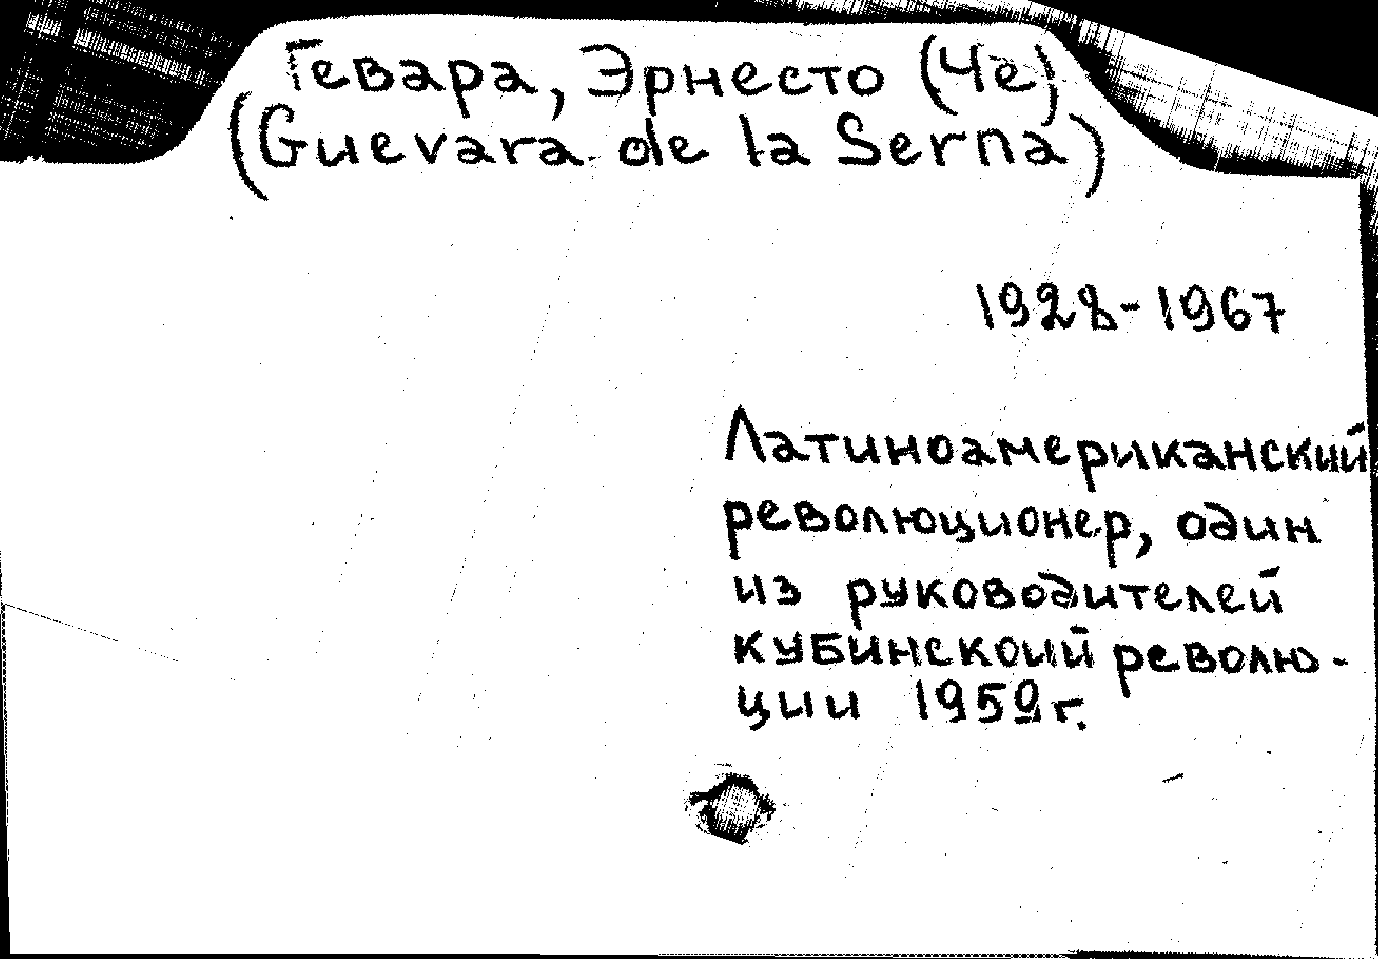 Гевара, Эрнесто (Че)
(Guevara de la Serna)
1928-1967
Латиноамериканский
революционер, один
из руководителей
кубинскоий револю-
ции 1959г.